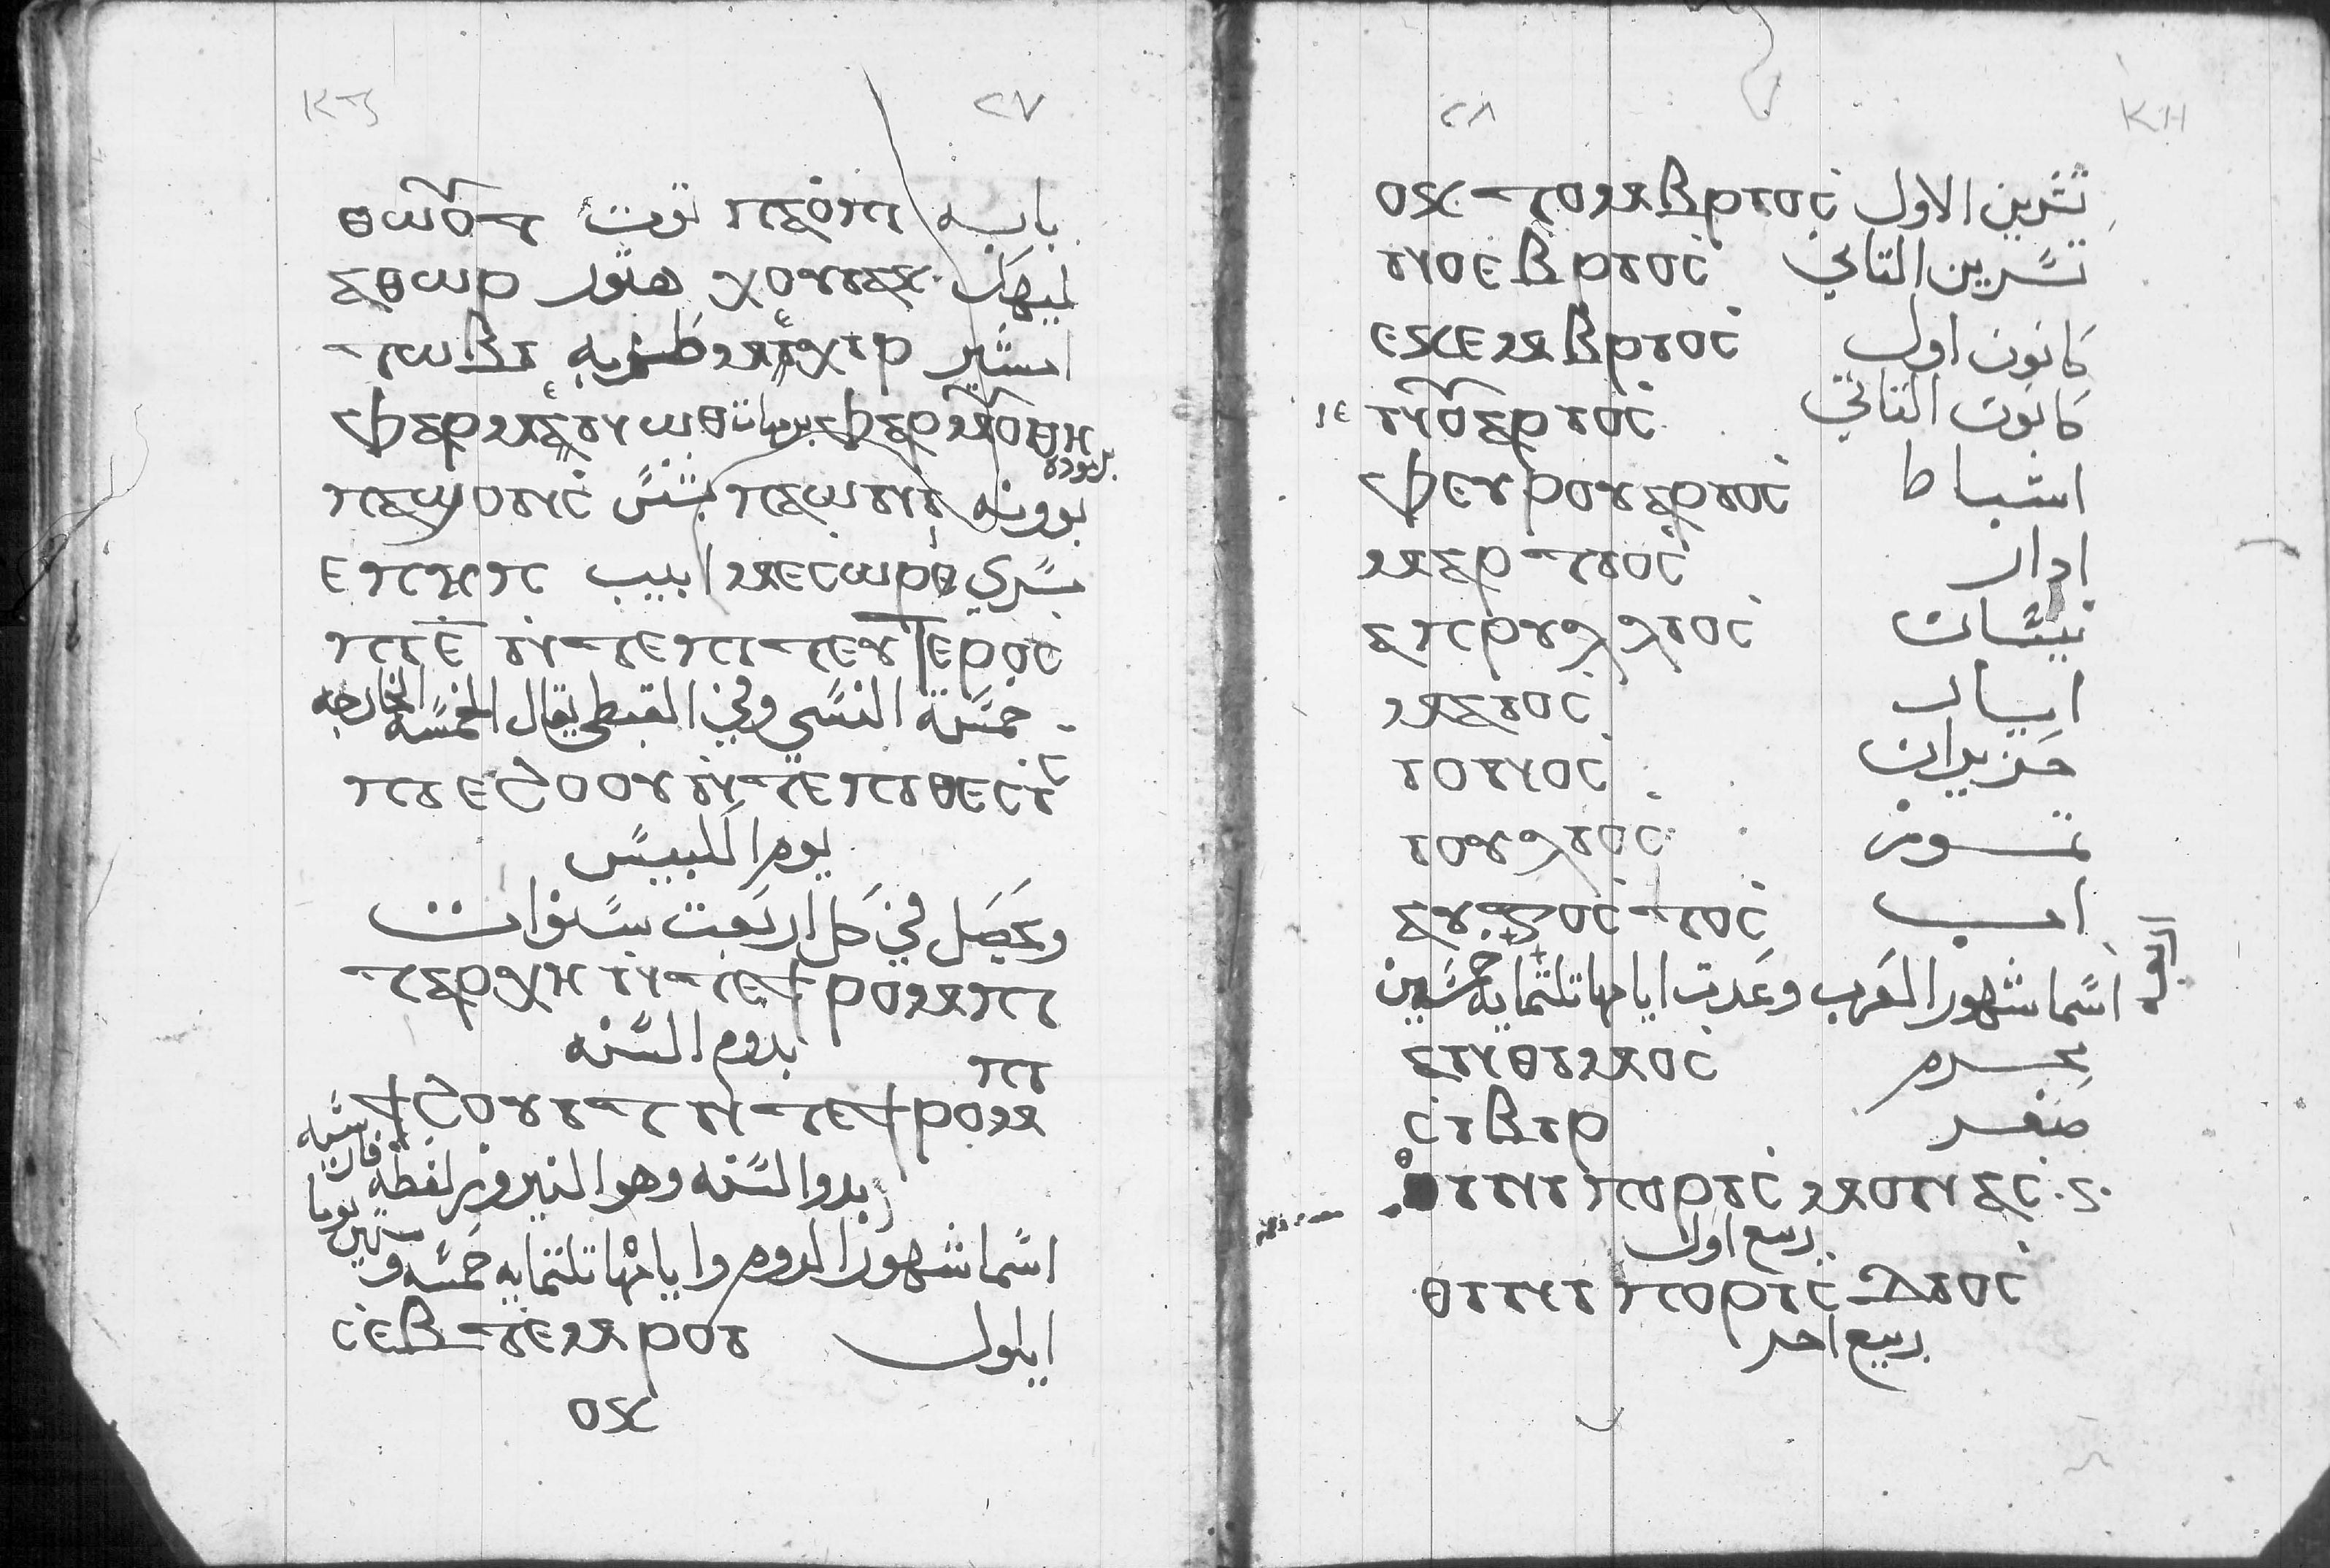 ⲕⲍ ٢٧
ⲑⲱⲟⲩⲧ توت ⲡⲁⲟⲡⲓ بابه
ⲁⲑⲱⲣ هتور ⲭⲟⲓⲁⲕ كيهك
ⲧⲱⲃⲓ طوبه ⲙⲉⲭⲓⲣ امشير
ⲫⲁⲣⲙⲉⲛⲱⲑ برمهات ⲫⲁⲣⲙⲟⲩⲑⲓ برموده
ⲡⲁϣⲟⲛⲥ بشنس ⲡⲁⲱⲛⲓ بوونه
ⲉⲡⲏⲡ ابيب ⲙⲉⲥⲱⲣⲏ مسري
ⲡⲓⲉ ⲛⲧⲉⲡⲧⲉⲩⲧⲉⲣⲟⲥ
خمسة النسي وفي القبطي يقال الخمسه الخارجه
ⲡⲓⲉϩⲟⲟⲩ ⲛⲧⲉⲡⲓⲑⲉⲥⲓⲥ
يوم الكبيس
ويحصل في كل اربعت سنوات
ⲧⲁⲣⲭⲏ ⲛⲧⲉϯⲣⲟⲙⲡⲓ
بدوم السنه
ϯϩⲟⲩⲓϯ ⲛⲧⲉϯⲣⲟⲙⲡⲓ
بدوا السنه وهو النيروز لفظة
اسما شهور الروم وايامها تلتمايه خمسه وستين يوما
ⲥⲉⲃⲧⲉⲙⲣⲟⲓ ايلول
ⲟⲕ
٢٨ ⲕⲏ
ⲟⲕⲧⲟⲙⲃⲣⲓⲟⲥ تشرين الاول
ⲛⲟⲉⲃⲣⲓⲟⲥ تشرين التاني
ⲉⲕⲉⲙⲃⲣⲓⲟⲥ كانون اول
ⲓⲉ ⲛⲟⲩⲁⲣⲓⲟⲥ كانون التاني
ⲫⲉⲩⲣⲟⲩⲁⲣⲓⲟⲥ اشباط
ⲙⲁⲣⲧⲓⲟⲥ ادار
ⲁⲡⲣⲩⲗⲗⲓⲟⲥ نيسان
ⲙⲁⲓⲟⲥ ايار
ⲓⲟⲩⲛⲟⲥ حزيران
ⲓⲟⲩⲗⲓⲟⲥ تموز
ⲁⲩⲅⲟⲥⲧⲟⲥ اب
اسما شهور العرب وعدت ايامها تلتمايه خمسين
ⲥⲩⲛⲑⲓⲙⲟⲥ محرم
ⲥⲓⲃⲓⲣ صفر
ⲑⲓⲛⲓ ⲡⲟⲣⲓⲥ ⲙⲟⲛⲁⲥ
ربيع اول
ⲑⲓⲛⲓ ⲡⲟⲣⲓⲥ ⲇⲓⲟⲥ
ربيع اخر